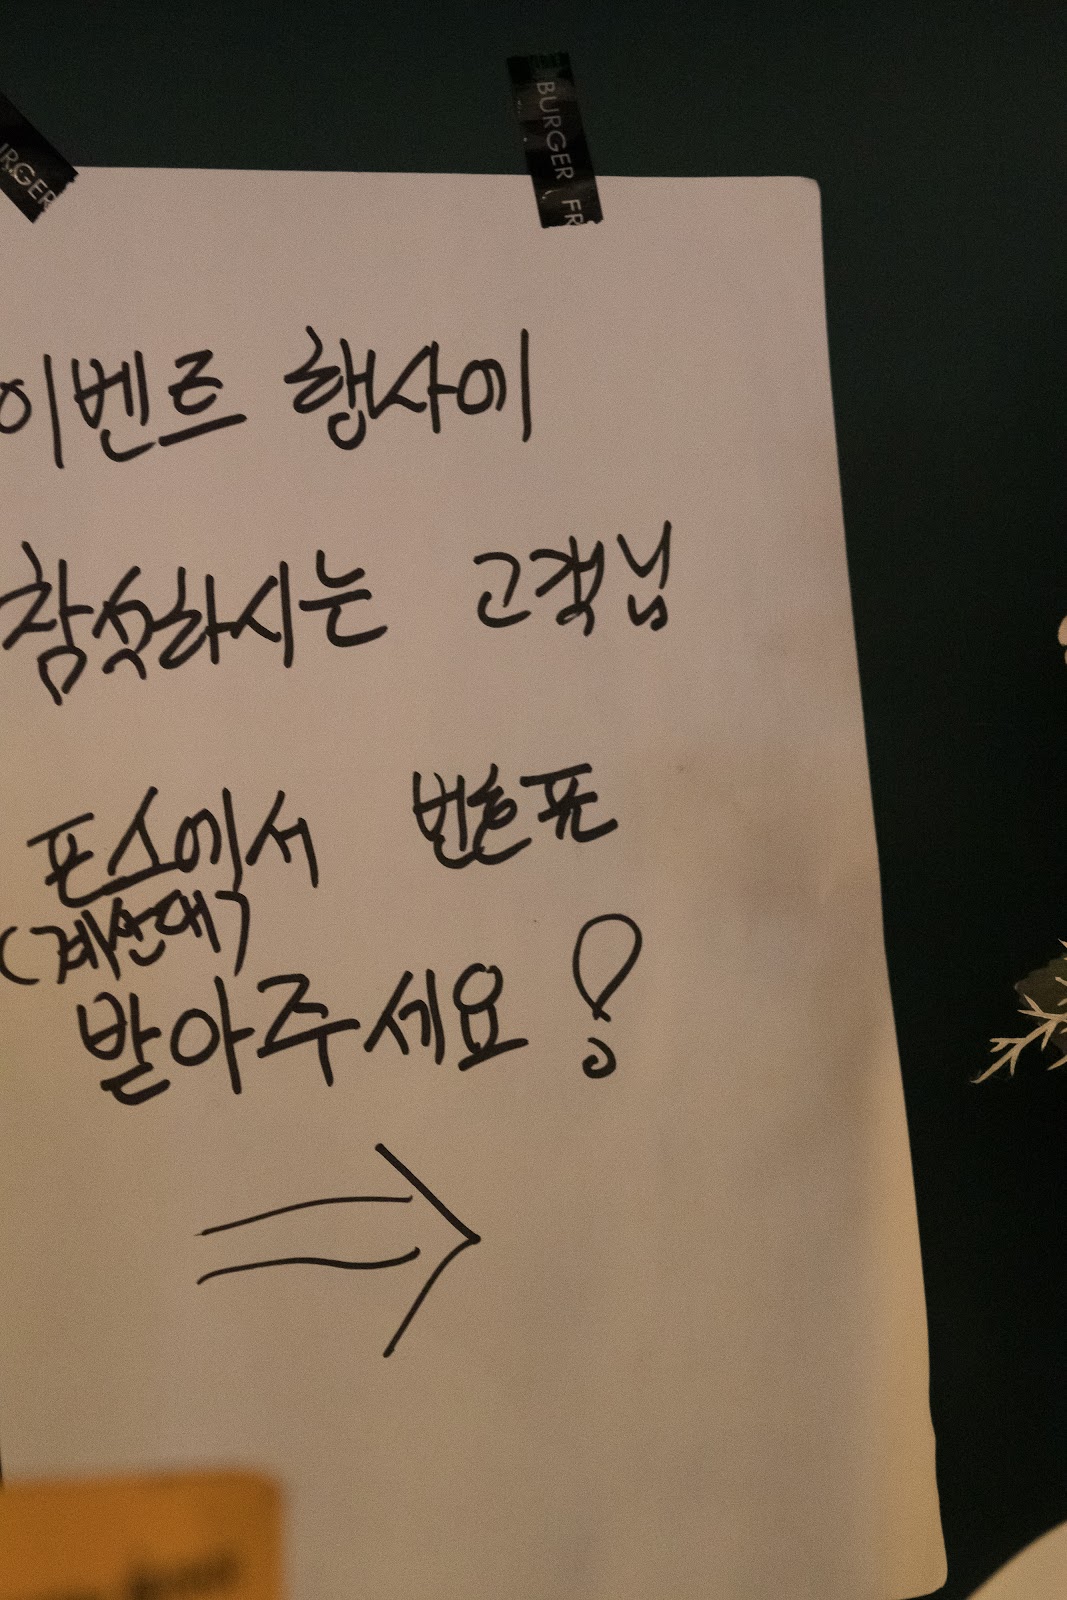 URGER
BURGER FR
이벤트 행사에
참석하시는 고객님
포스에서 번호표
(계산대)
받아주세요!